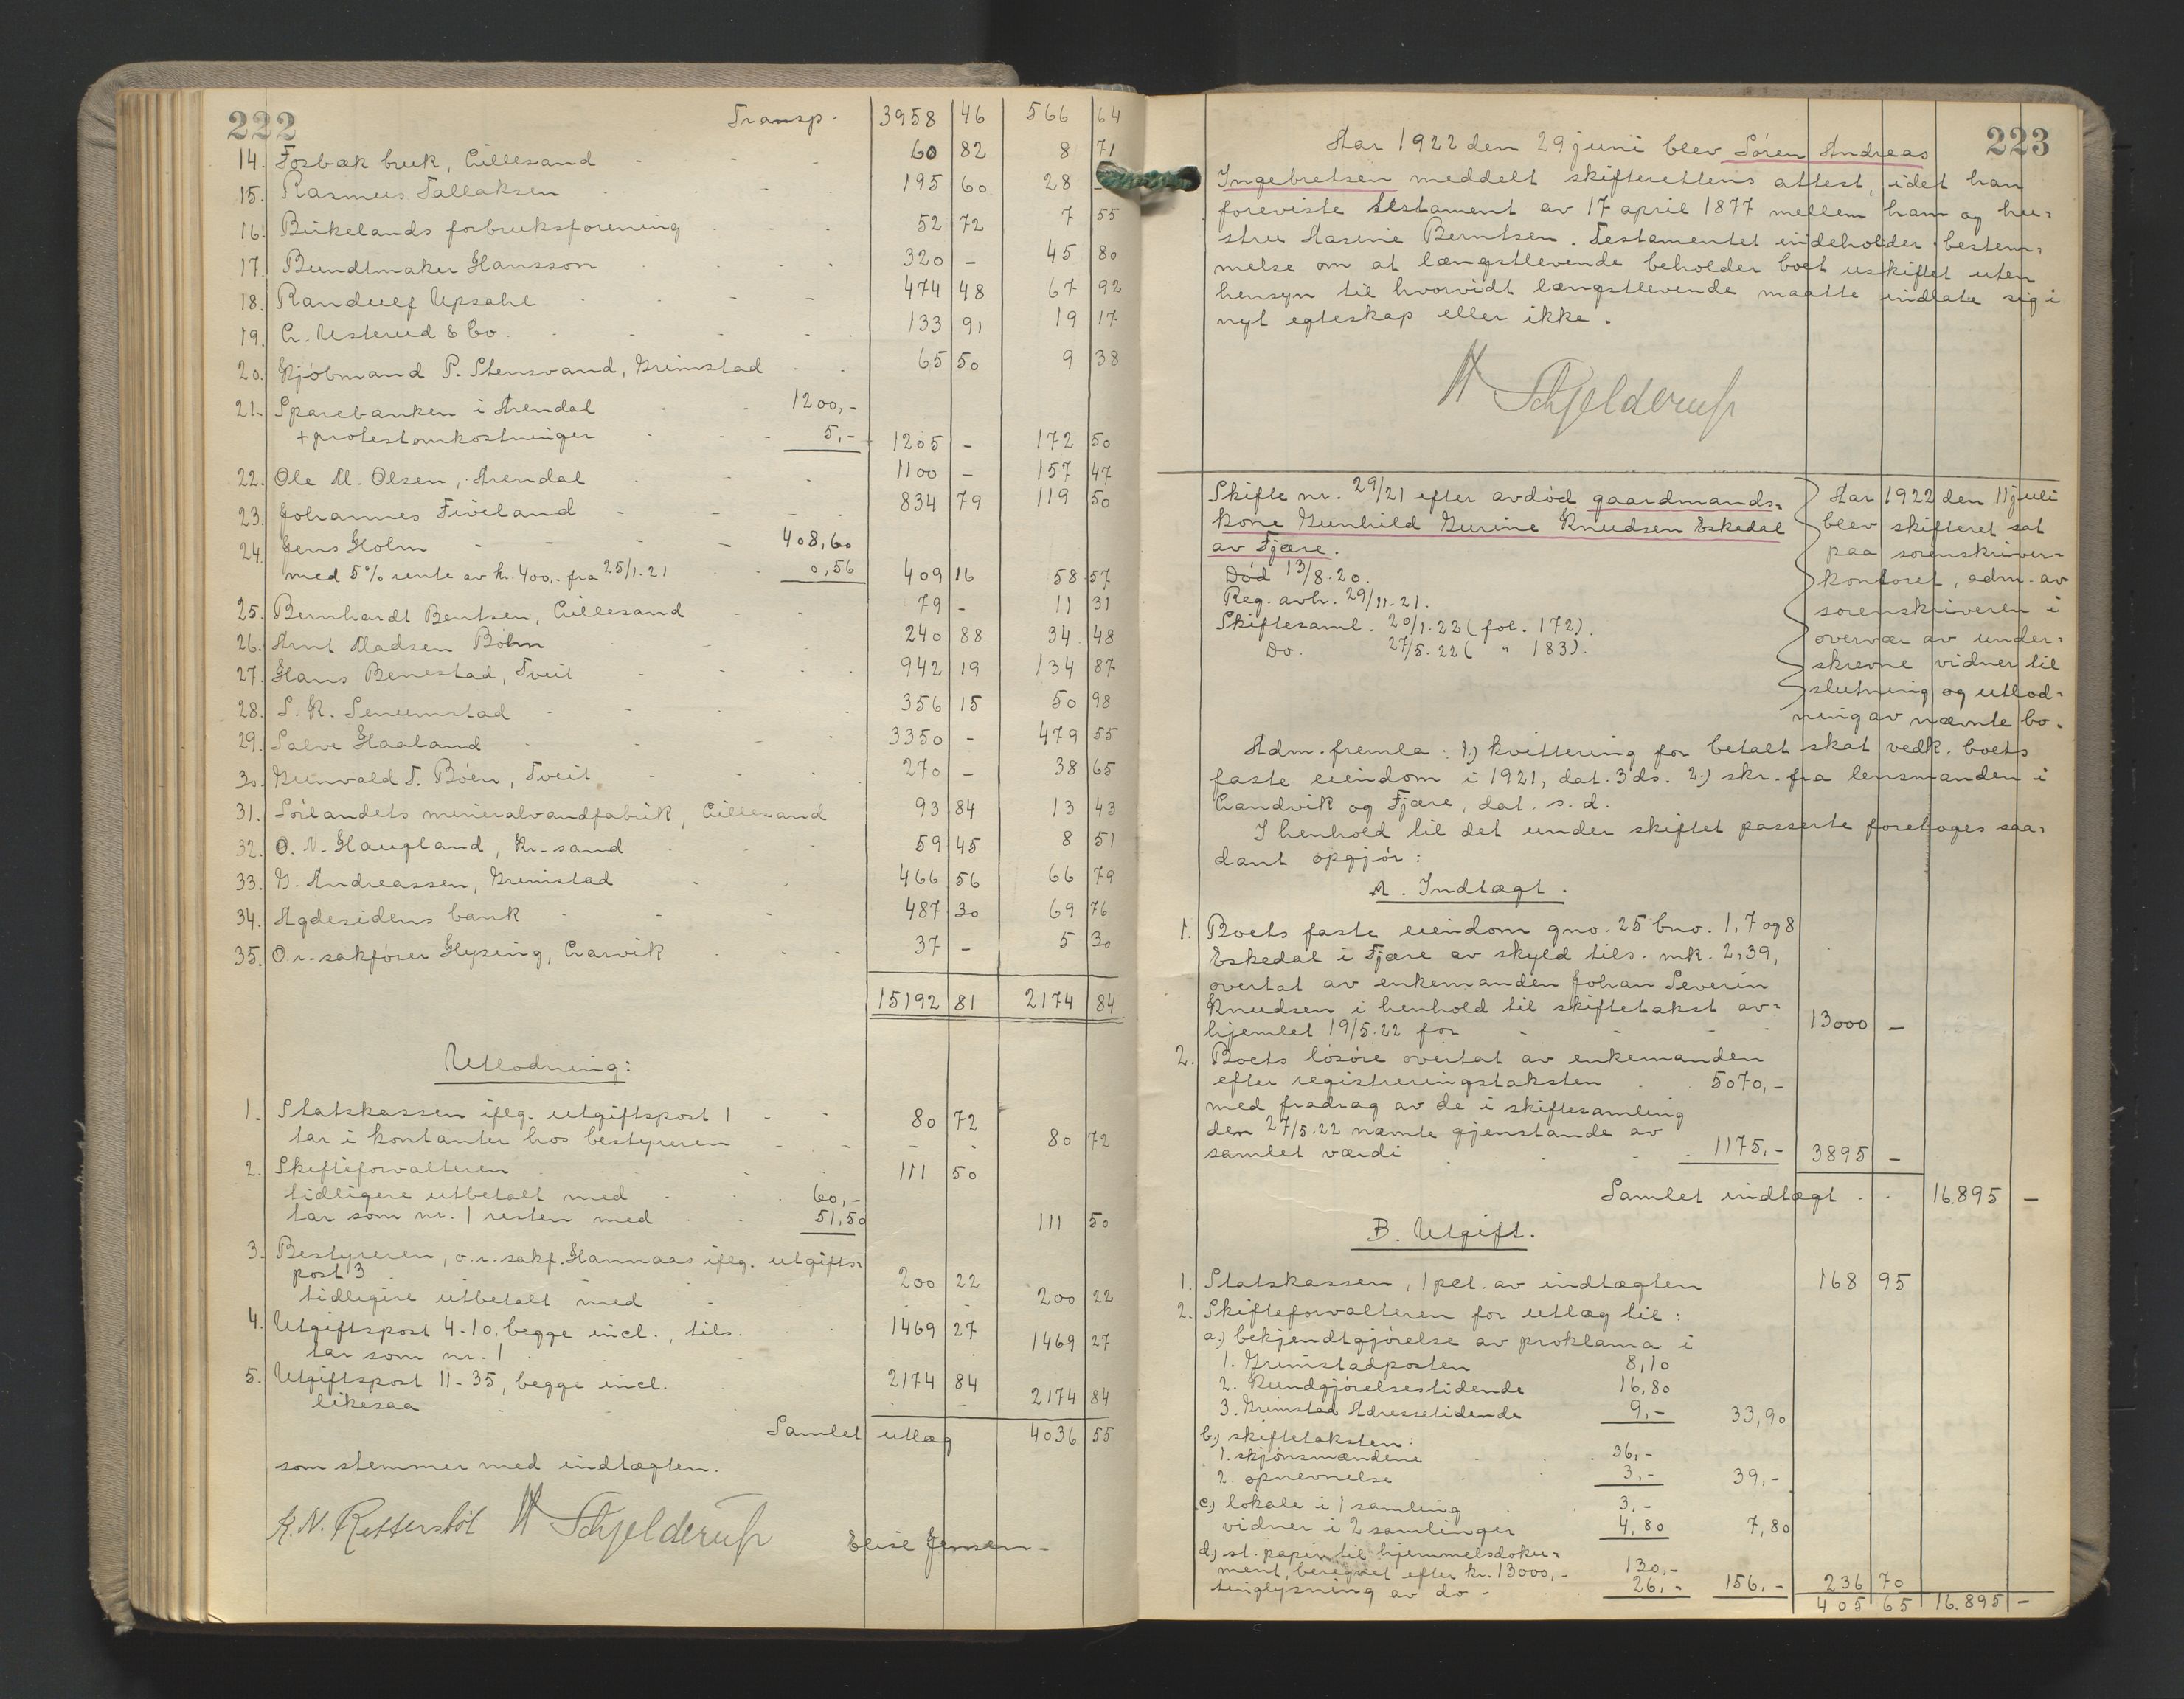 222
Transp. 3958 46 566 64
14. Fosbæk bruk, Lillesand 60 82 8 71
15. Rasmus Tallaksen 195 60 28
16. Birkelands forbruksforening 52 72 7 55
17. Bundtmaker Hansson 320 - 45 80
18. Randulf Upsahl 474 48 67 92
19. L. Usterud & Co. 133 91 19 17
20. Kjöbmand P. Stensvand, Grimstad 65 50 9 38
21. Sparebanken i Arendal 1200,-
+ protestomkostninger 5,- 1205 - 172 50
22. Ole M. Olsen, Arendal 1100 - 157 47
23. Johannes Fiveland 834 79 119 50
24. Jens Holm 408,60
med 5% rente av kr. 400,- fra 25/1.21 0,56 409 16 58 57
25. Bernhardt Bentsen, Lillesand 79 - 11 31
26. Arnt Madsen Böhn 240 88 34 48
27. Hans Benestad, Tveit 942 19 134 87
28. S. K. Senumstad 356 15 50 98
29. Salve Haaland 3350 - 479 55
30. Gunvald T. Böen, Tveit 270 - 38 65
31. Sörlandets mineralvandfabrik, Lillesand 93 84 13 43
32. O. N. Haugland, Kr.sand 59 45 8 51
33. G. Andreassen, Grimstad 466 56 66 79
34. Agdesidens bank 487 30 69 76
35. O.r.sakförer Hysing, Larvik 37 - 5 30
15192 81 2174 84
Utlodning:
1. Statskassen iflg. utgiftspost 1 80 72
tar i kontanter hos bestyreren 80 72
2. Skifteforvalteren 111 50
tidligere utbetalt med 60,-
tar som nr. 1 resten med 51,50 111 50
3. Bestyreren, o.r.sakf. Hannaas iflg. utgifts-
post 3 200 22
tidligere utbetalt med 200 22
4. Utgiftspost 4-10, begge incl., tils. 1469 27
tar som nr. 1 1469 27
5. Utgiftspost 11-35, begge incl. 2174 84
likesaa 2174 84
Samlet utlæg 4036 55
som stemmer med indtægten.
K. N. Rettersböl H Schjelderup Elise Jensen
223
Aar 1922 den 29 juni blev Sören Andreas
Ingebretsen meddelt skifterettens attest, idet han
foreviste testament av 17 april 1877 mellem ham og hu-
stru Aasine Berntsen. Testamentet indeholder bestem-
melse om at længstlevende beholder boet uskiftet uten
hensyn til hvorvidt længstlevende maatte indlate sig i
nyt egteskap eller ikke.
H Schjelderup
Skifte nr. 29/21 efter avdöd gaardmands-
kone Gunhild Gurine Knudsen Eskedal
av Fjære.
Död 13/8.20.
Reg. avh. 29/11.21.
Skiftesaml. 20/1.22 (fol. 172).
Do. 27/5.22 ( " 183).
Aar 1922 den 11 juli
blev skifteret sat
paa sorenskriver-
kontoret, adm. av
sorenskriveren i
overvær av under-
skrevne vidner til
slutning og utlod-
ning av nævnte bo.
Adm. fremla: 1.) kvittering for betalt skat vedk. boets
faste eiendom i 1921, dat. 3 ds. 2.) skr. fra lensmanden i
Landvik og Fjære, dat. s. d.
I henhold til det under skiftet passerte foretoges saa-
dant opgjör:
A. Indtægt.
1. Boets faste eiendom gno. 25 bno. 1, 7 og 8
Eskedal i Fjære av skyld tils. mk. 2,39,
overtat av enkemanden Johan Severin
Knudsen i henhold til skiftetakst av-
hjemlet 19/5.22 for 13000 -
2. Boets lösöre overtat av enkemanden
efter registreringstaksten 5070,-
med fradrag av de i skiftesamling
den 27/5.22 nævnte gjenstande av
samlet værdi 1175,- 3895 -
Samlet indtægt 16.895 -
B. Utgift.
1. Statskassen, 1 pct. av indtægten 168 95
2. Skifteforvalteren for utlæg til:
a.) bekjendtgjörelse av proklama i
1. Grimstadposten 8,10
2. Kundgjörelsestidende 16,80
3. Grimstad Adressetidende 9,- 33,90
b.) skiftetaksten:
1. skjönsmændene 36,-
2. opnevnelse 3,- 39,-
c.) lokale i 1 samling 3,-
vidner i 2 samlinger 4,80 7,80
d.) st. papir til hjemmelsdoku-
ment, beregnet efter kr. 13000,- 130,-
tinglysning av do 26,- 156,- 236 70
405 65 16.895 -